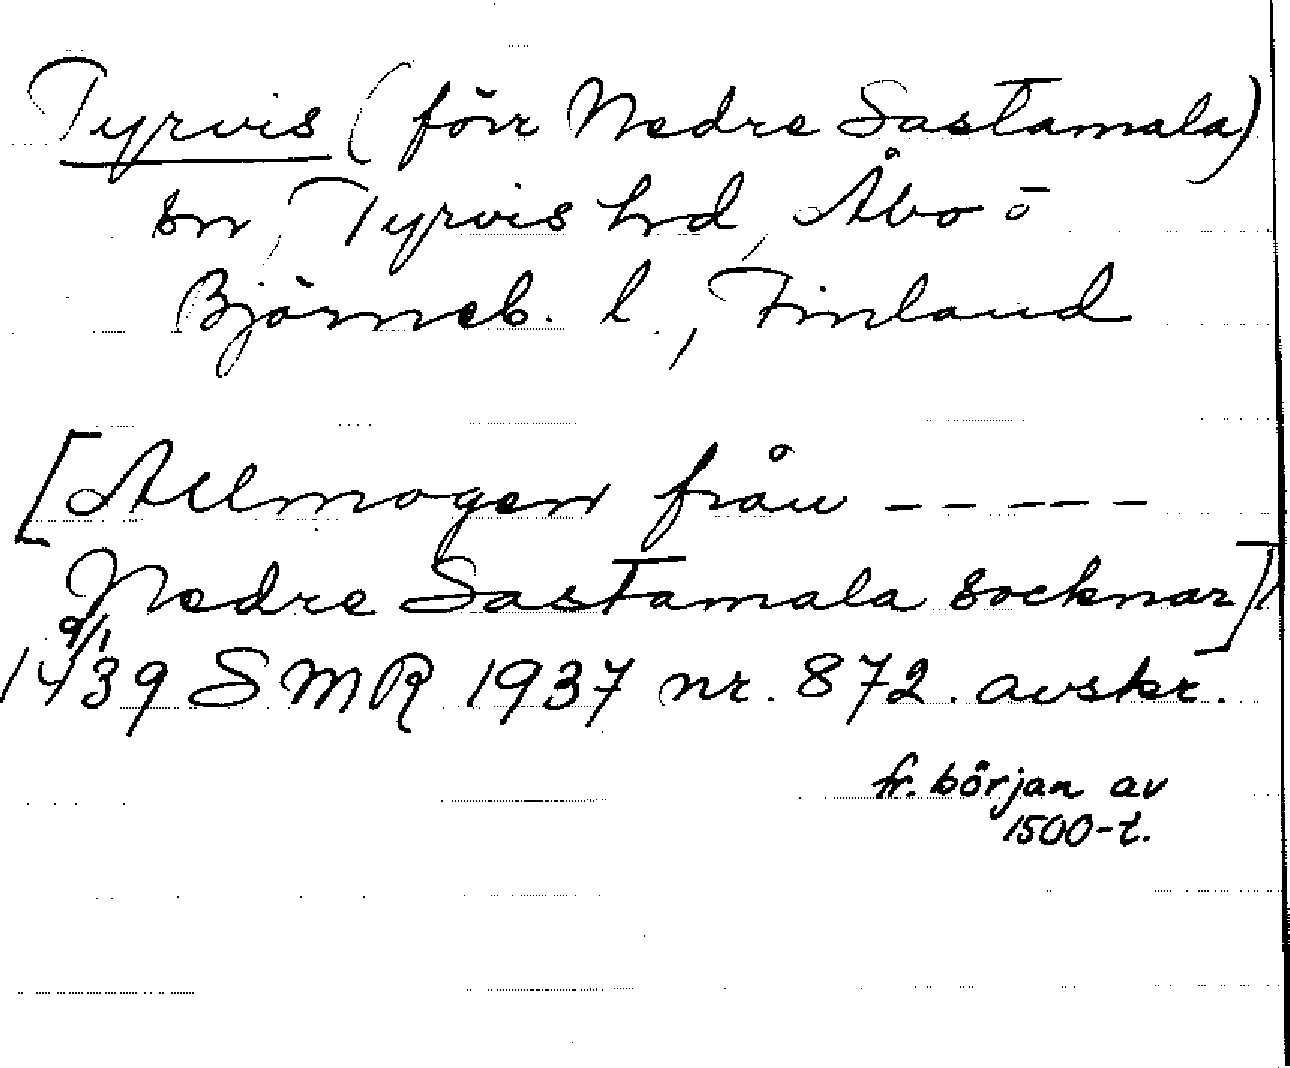 Tyrvis (förr Nedre Sastamala)
sn, Tyrvis hrd, Åbo o
Björneb. l., Finland
[Allmogen från -----
Nedre Sastamala socknar]
9/1
1439 SMR 1937 nr. 872. avskr.
fr. början av
1500-t.